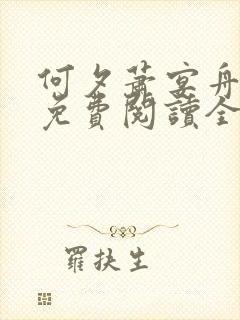 何夕蕭宴舟
免費閱讀全
羅扶生